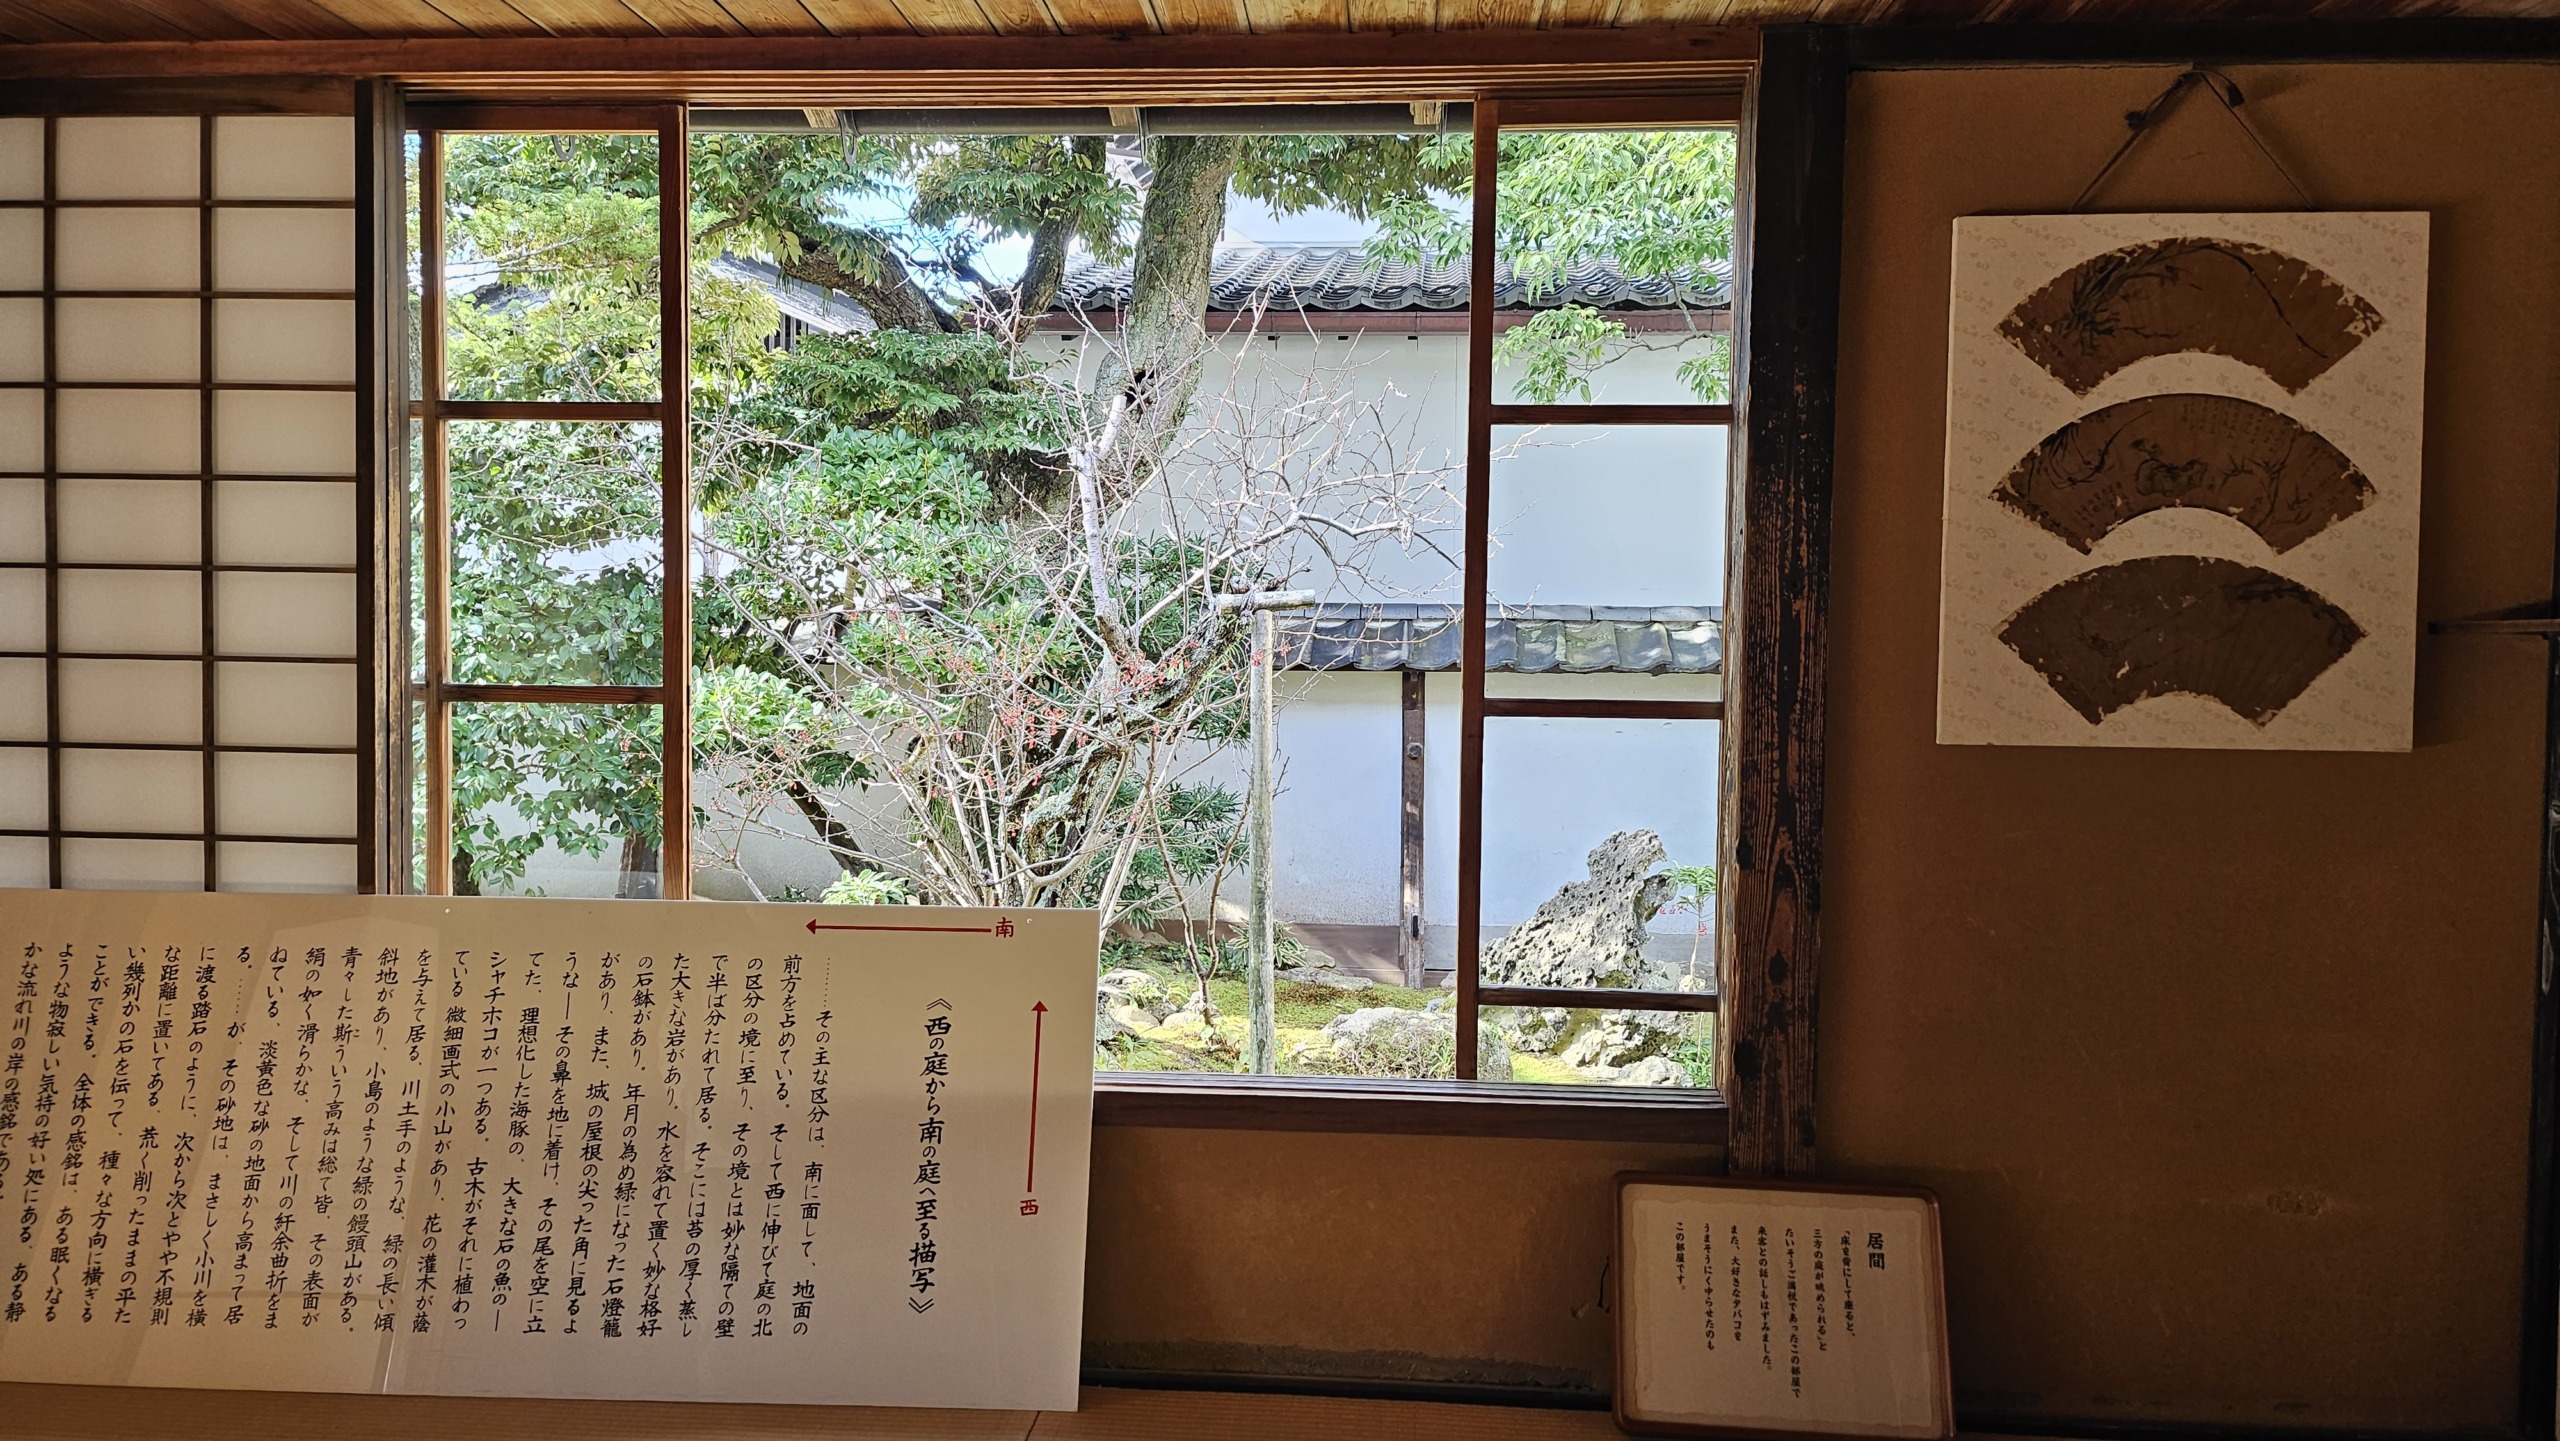 南
西
《西の庭から南の庭へ至る描写》
………その主な区分は、南に面して、地面の
前方を占めている。そして西に伸びて庭の北
の区分の境に至り、その境とは妙な隔ての壁
で半ば分たれて居る。そこには苔の厚く蒸し
た大きな岩があり。水を容れて置く妙な格好
の石鉢があり。年月の為め緑になった石燈籠
があり、また、城の屋根の尖った角に見るよ
うな―その鼻を地に着け、その尾を空に立
てた、理想化した海豚の、大きな石の魚の―
シャチホコが一つある。古木がそれに植わっ
ている 微細画式の小山があり、花の灌木が蔭
を与えて居る、川土手のような、緑の長い傾
斜地があり、小島のような緑の饅頭山がある。
青々した斯ういう高みは総て皆、その表面が
絹の如く滑らかな、そして川の紆余曲折をま
ねている、淡黄色な砂の地面から高まって居
る。……が、その砂地は、まさしく小川を横
に渡る踏石のように、次から次とやや不規則
な距離に置いてある、荒く削ったままの平た
い幾列かの石を伝って、種々な方向に横ぎる
ことができる。全体の感銘は、ある眠くなる
ような物寂しい気持の好い処にある、ある静
かな流れ川の岸の感銘である。
居間
「床を背にして座ると、
三方の庭が眺められる」と
たいそうご満悦であったこの部屋で
来客との話しもはずみました。
また、大好きなタバコを
うまそうにくゆらせたのも
この部屋です。